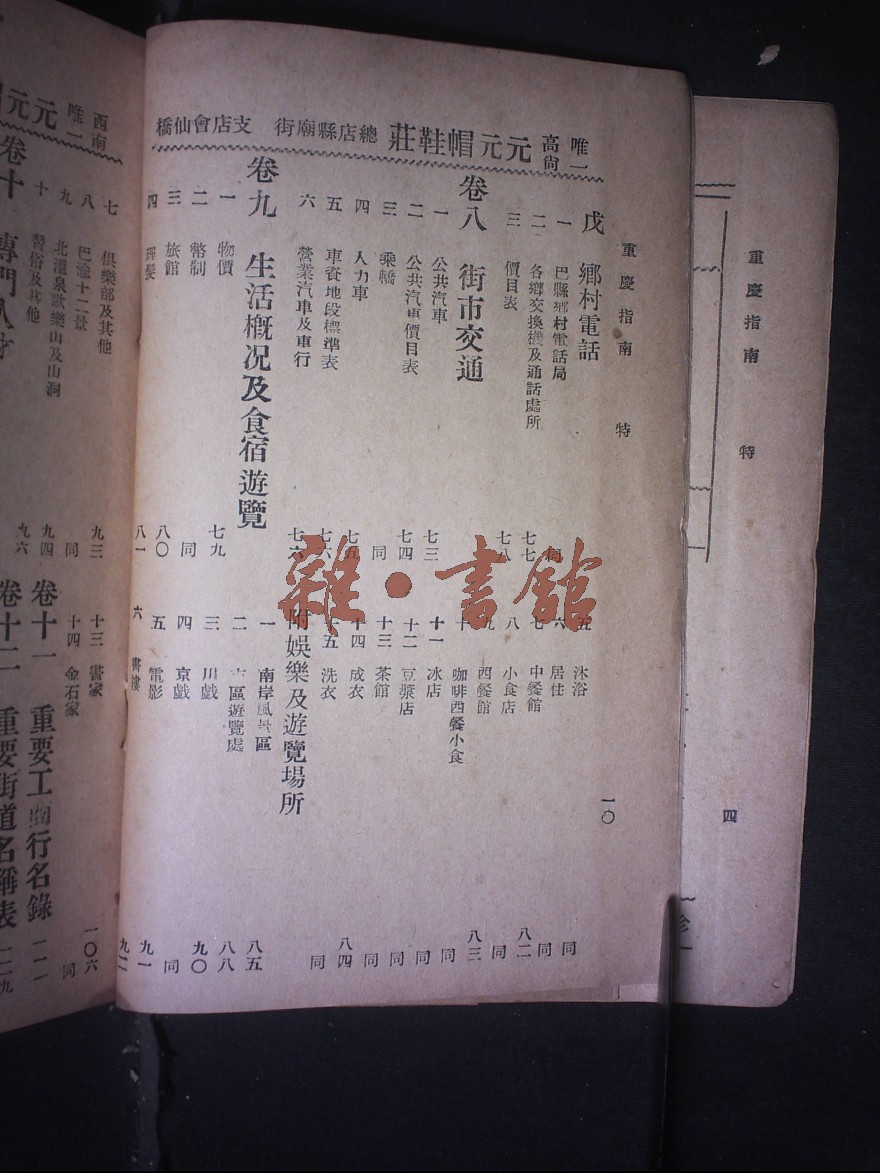 唯一高尚 元元帽鞋莊 總店縣廟街 支店會仙橋
重慶指南 特 一〇
戊 鄉村電話
一 巴縣鄉村電話局
二 各鄉交換機及通話處所 七七
三 價目表 七八
卷八 街市交通
一 公共汽車 七三
二 公共汽車價目表 七四
三 乘轎 同
四 人力車
五 車資地段標準表 七六
六 營業汽車及車行 七六
卷九 生活概况及食宿遊覽
一 物價 七九
二 幣制 同
三 旅館 八〇
四 理髮 八一
五 沐浴 同
六 居住 同
七 中餐館 八二
八 小食店 同
九 西餐館 八三
十 咖啡西餐小食 同
十一 冰店 同
十二 豆漿店 同
十三 茶館 同
十四 成衣 八四
十五 洗衣 同
附娛樂及遊覽場所
一 南岸風景區 八五
二 市區遊覽處 八八
三 川戲 九〇
四 京戲 同
五 電影 九一
六 書樓 九二
西南唯一 元元
七 俱樂部及其他 九三
八 巴渝十二景 同
九 北溫泉歌樂山及山洞 九四
十 習俗及其他 九六
卷十 專門人才
十三 書家 一〇六
十四 金石家 同
卷十一 重要工商行名錄 一一一
卷十二 重要街道名稱表 一一九
重慶指南 特 四
雜·書館